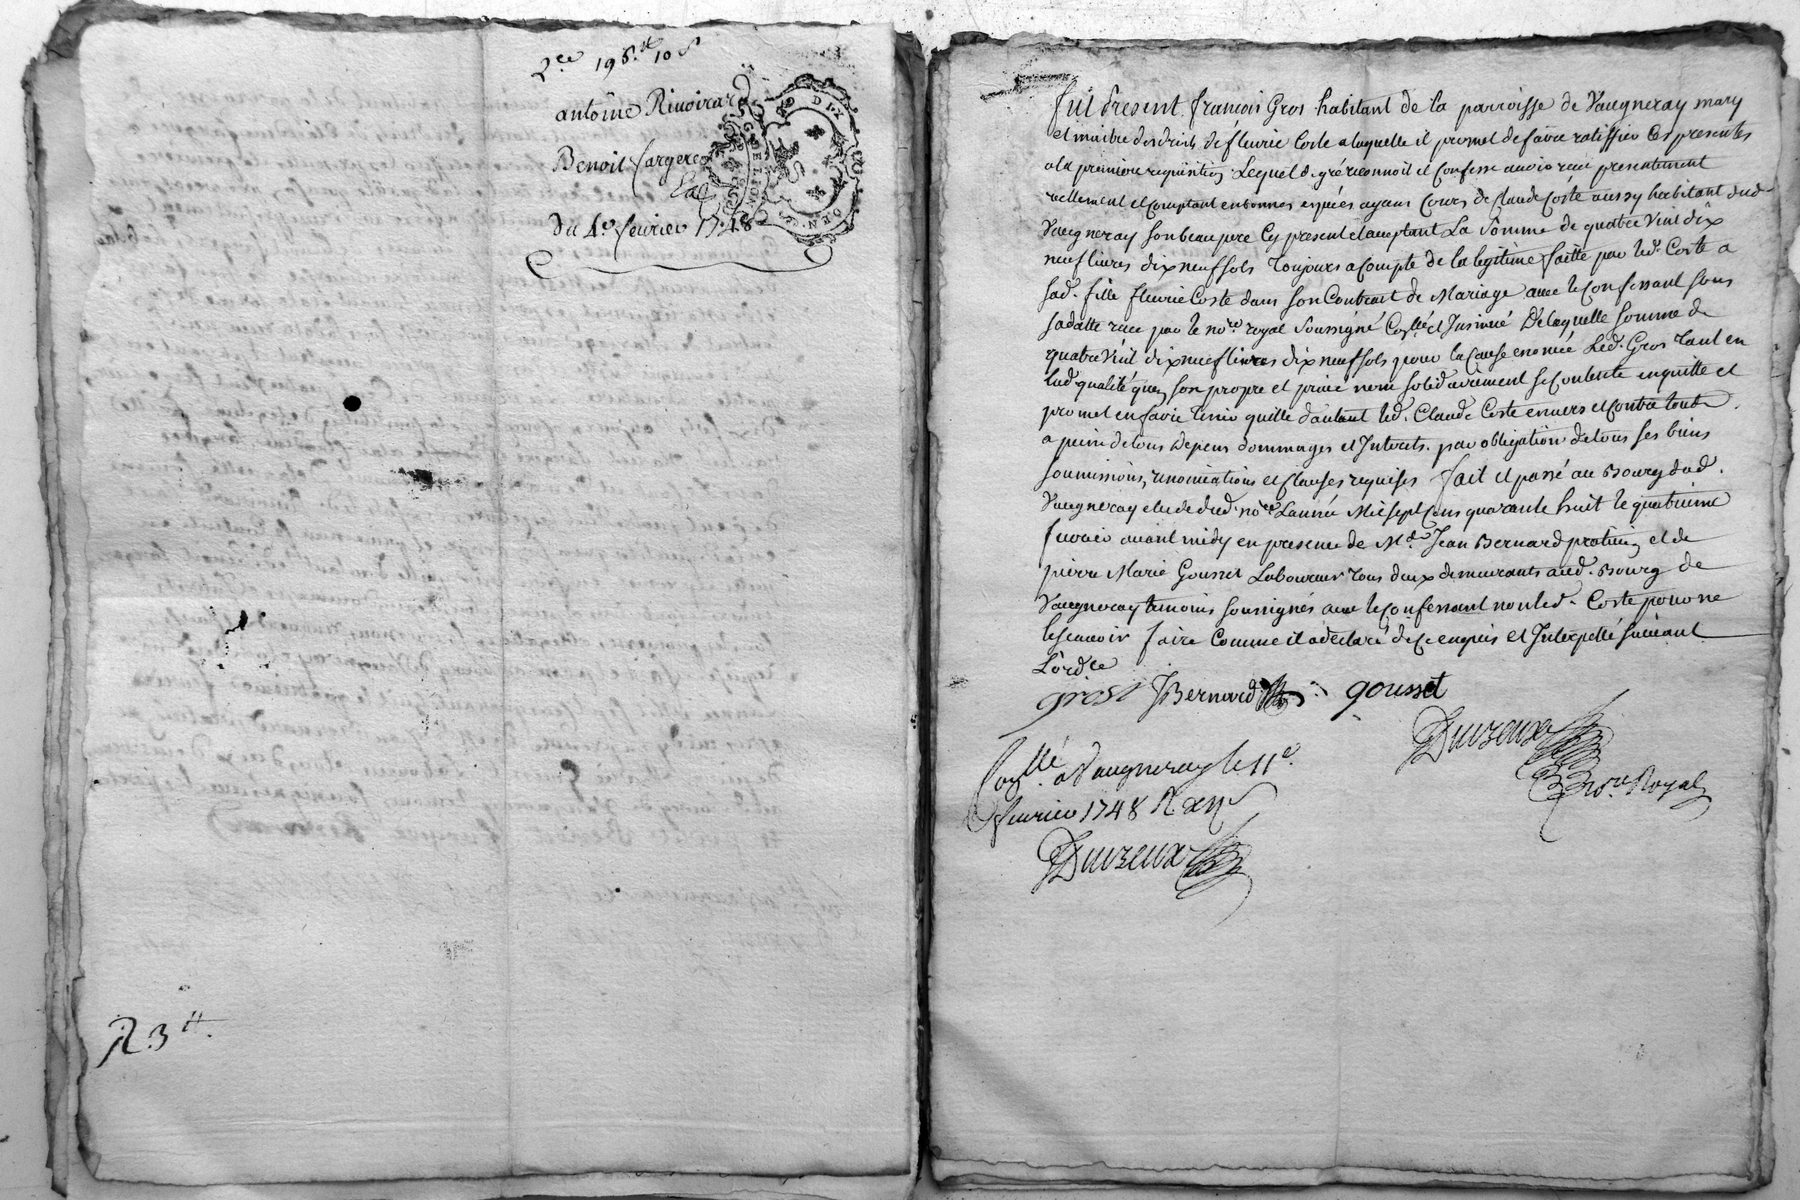 2.ce 195.tt 10 s
antoine Rivoirard
Benoit fargere
du 4.e fevrier 1748
GÉN. DE LYON
R. 3 tt.
fut present francois Gros habitant de la parroisse de Vaugneray mary
et maitre des droits de fleurie Coste a laquelle il promet de faire ratiffier Ces presentes
a la premiere requisition Lequel de gré reconnoit et Confesse avoir receu presentement
reellement et Comptant en bonnes especes ayant Cours de Claude Coste aussy habitant dud.
Vaugneray son beau pere Cy present et acceptant La Somme de quatre Vint dix
neuf livres dix neuf sols Toujours a Compte de la legitime faitte par led. Coste a
sad. fille fleurie Coste dans son Contract de Mariage avec le Confessant sous
sa datte receu par le no.re royal Soussigné Con.llé et Insinué De laquelle somme de
quatre Vint dix neuf livres dix neuf sols pour la Cause enoncée Led. Gros Tant en
lad. qualité que son propre et privé nom solidairement se Contente en quitte et
promet en faire tenir quitte d'autant led. Claude Coste envers et Contre touts
a peine de tous depens dommages et Interets. par obligation de tous ses biens
soumissions, renonciations et Clauses requises fait et passé au Bourg dud.
Vaugneray etude dud. no.re L'année Mil sept Cens quarante huit le quatrieme
fevrier avant midy en presence de M.e Jean Bernard praticien et de
pierre Marie Gousset Laboureur Tous deux demeurants aud. Bourg de
Vaugneray temoins soussignés avec le Confessant non led. Coste pour ne
le scavoir faire Comme il a declaré de ce enquis et Interpellé suivant
L'ord.ce
gros JBernard gousset
Duvzeux
no.re Royal
Con.llé a Vaugneray le 11.e
fevrier 1748 R. xii s
Duvzeux